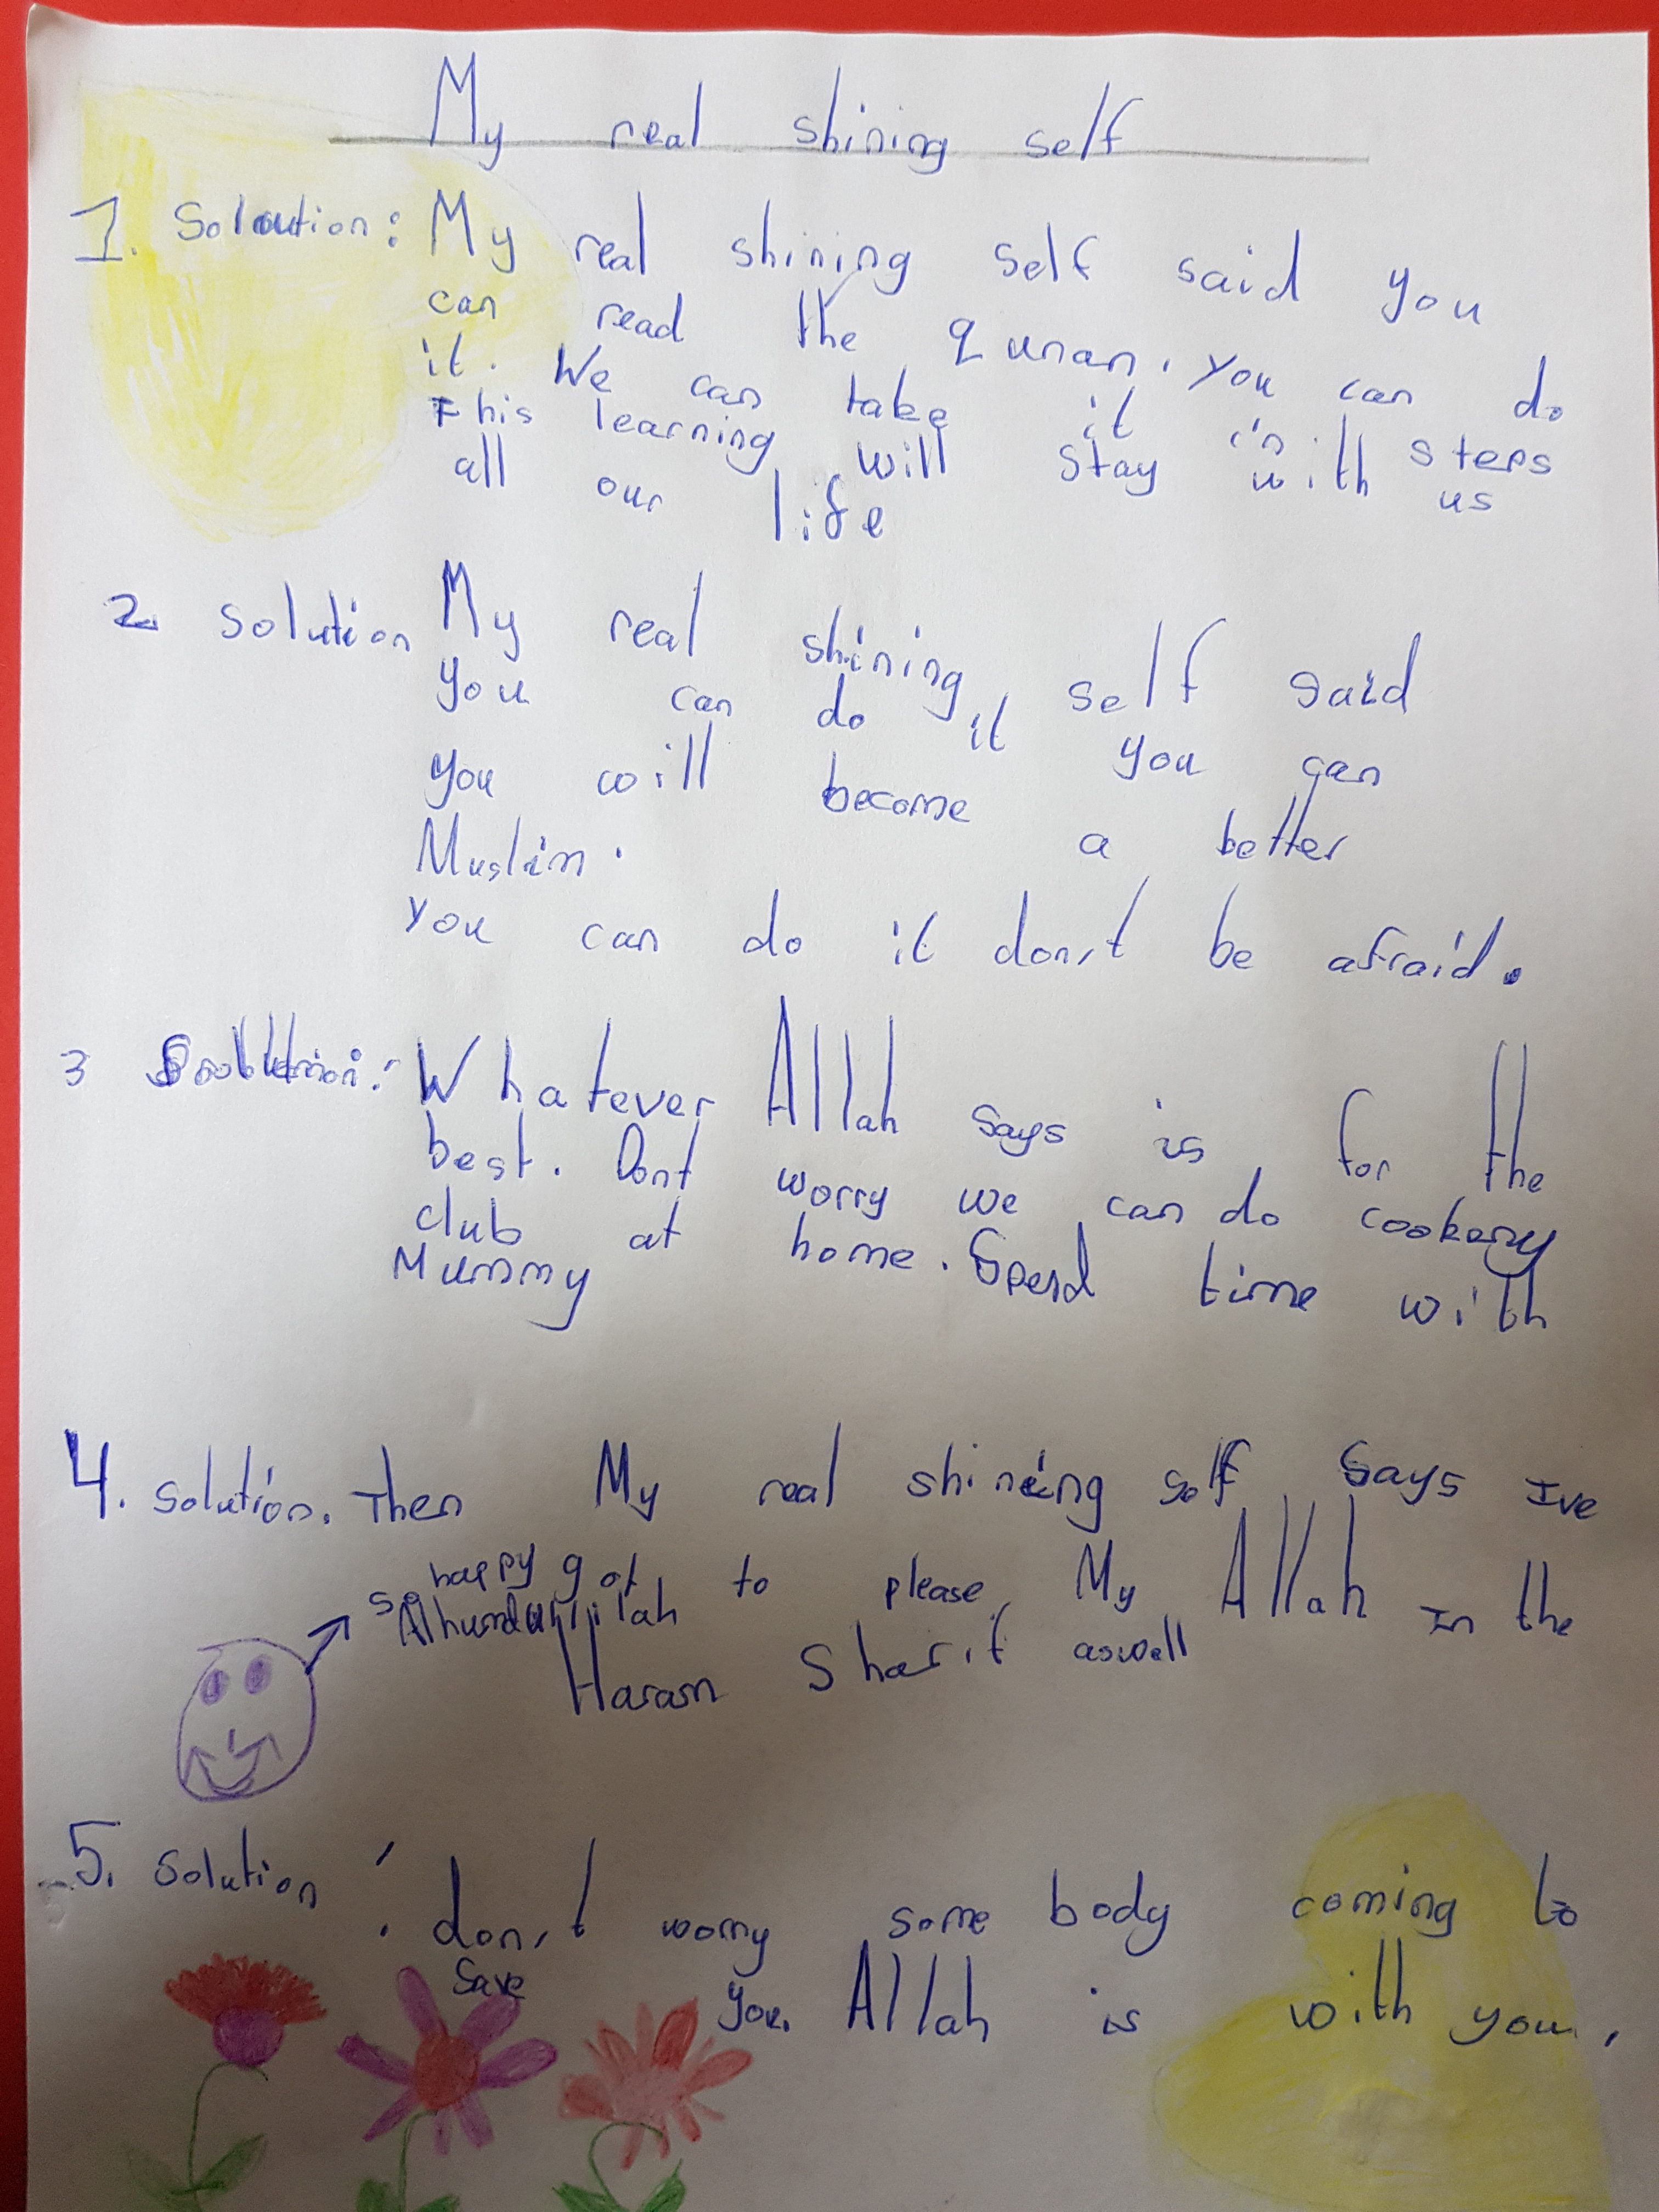 My real shining self
1. Soloution: My real shining self said you
can read the quran. you can do
it. We can take it in steps
This learning will stay with us
all our life
2. Solution My real shining self said
you can do it you can
you will become a better
Muslim.
you can do it don,t be afraid.
3 Solution: Whatever Allah says is for the
best. Dont worry we can do cookery
club at home. Spend time with
Mummy
4. Solution. Then My real shining self says Ive
got to please My Allah in the
Haram Sharif aswell
so happy
Alhumdulillah
5. Solution : don,t worry some body coming to
save you. Allah is with you.